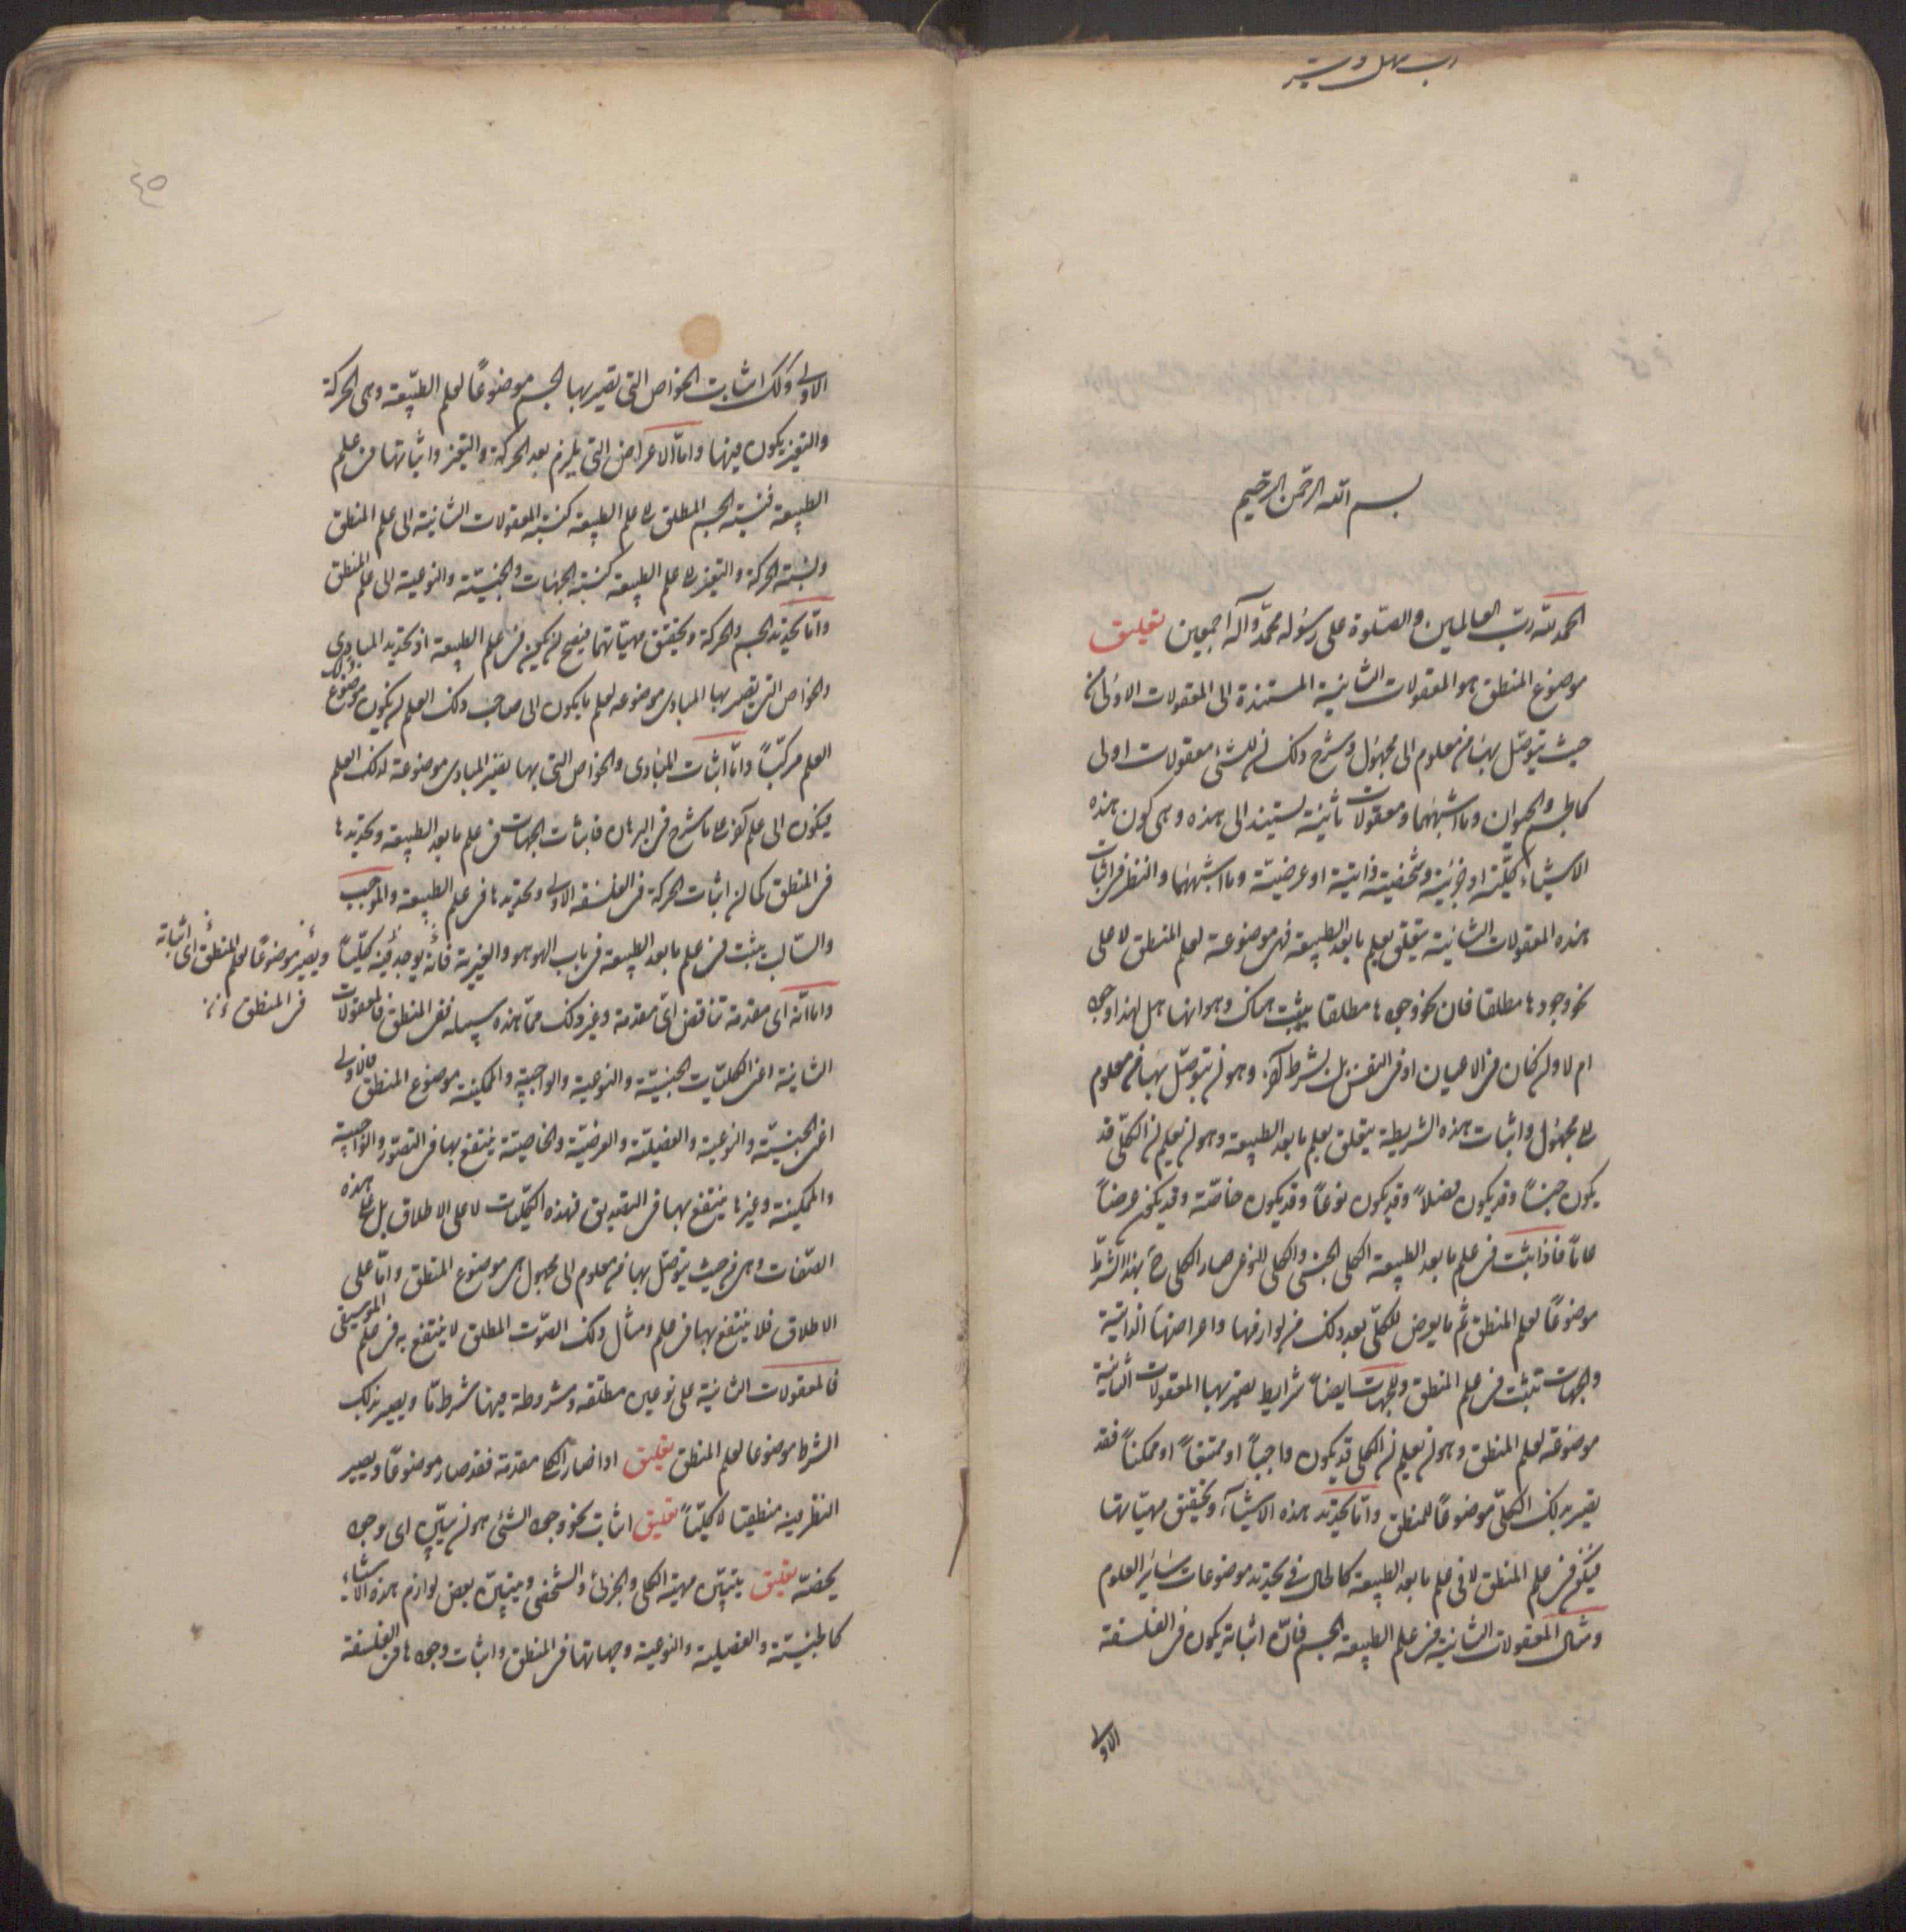 بسم الله الرحمن الرحيم
الحمد لله رب العالمين والصلوة على رسوله محمد وآله اجمعين تعليق
موضوع المنطق هو المعقولات الثانية المستندة الى المعقولات الاولى من
حيث يتوصل بها من معلوم الى مجهول وشرح ذلك ان للشئ معقولات اولى
كالجسم والحيوان وما اشبههما ومعقولات ثانية تستند الى هذه وهى كون هذه
الاشياء كلية او جزئية وشخصية ذاتية او عرضية وما اشبههما والنظر فى اثبات
هذه المعقولات الثانية يتعلق بعلم ما بعد الطبيعة فهى موضوعة لعلم المنطق لا على
نحو وجودها مطلقا فان نحو وجودها مطلقا يثبت هناك وهو انها هل لها وجود
ام لا وان كان فى الاعيان او فى النفس بل بشرط آخر وهو ان يتوصل بها من معلوم
الى مجهول واثبات هذه الشريطة يتعلق بعلم ما بعد الطبيعة وهو ان يعلم ان الكلى قد
يكون جنسا وقد يكون فصلا وقد يكون نوعا وقد يكون خاصة وقد يكون عرضا
عاما فاذا ثبت فى علم ما بعد الطبيعة الكلى الجنسى والكلى النوعى صار الكلى ح بهذا الشرط
موضوعا لعلم المنطق ثم ما يعرض للكلى بعد ذلك من لوازمها واعراضها الذاتية
والجهات تثبت فى علم المنطق وللجهات ايضا شرايط تصير بها المعقولات الثانية
موضوعة لعلم المنطق وهو ان يعلم ان الكلى قد يكون واجبا او ممتنعا او ممكنا فقد
يصير بذلك الكلى موضوعا للمنطق واما تحديد هذه الاشياء وتحقيق مهياتها
فيكون فى علم المنطق لا فى علم ما بعد الطبيعة كالحال فى تحديد موضوعات سائر العلوم
ومثال المعقولات الثانية فى علم الطبيعة الجسم فان اثباته يكون فى الفلسفة
الاولى
٤٥
الاولى وكذلك اثبات الخواص التى تصير بها الجسم موضوعا لعلم الطبيعة وهى الحركة
والتغير يكون فيها واما الاعراض التى يلزم بعد الحركة والتغير واثباتها فى علم
الطبيعة فنسبة الجسم المطلق الى علم الطبيعة كنسبة المعقولات الثانية الى علم المنطق
ونسبة الحركة والتغير الى علم الطبيعة كنسبة الجهات والجنسية والنوعية الى علم المنطق
واما تحديد الجسم والحركة وتحقيق مهياتهما فيصح ان يكون فى علم الطبيعة اذ تحديد المبادى
والخواص التى تصير بها المبادى موضوعة لعلم ما يكون الى صاحب ذلك العلم ان يكون موضوع ذلك
العلم مركبا واما اثبات المبادى والخواص التى بها يصير المبادى موضوعة لذلك العلم
فيكون الى علم آخر على ما شرح فى البرهان فاثبات الجهات فى علم ما بعد الطبيعة وتحديدها
فى المنطق كما ان اثبات الحركة فى الفلسفة الاولى وتحديدها فى علم الطبيعة والموجب
والسالب يثبت فى علم ما بعد الطبيعة فى باب الهو هو والغيرية فانه يوجد فيه كليا
ويصير موضوعا لعلم المنطق اى اثباته
فى المنطق
واما انه اى مقدمة تناقض اى مقدمة وغير ذلك مما هذه سبيله ففى المنطق فالمعقولات
الثانية اعنى الكليات الجنسية والنوعية والواجبية والممكنية موضوع المنطق فالاولى
اعنى الجنسية والنوعية والفصلية والعرضية والخاصية ينتفع بها فى التصور والواجبية
والممكنية وغيرها ينتفع بها فى التصديق فهذه الكليات لا على الاطلاق بل على هذه
الصفات وهى من حيث يتوصل بها من معلوم الى مجهول هى موضوع المنطق واما على
الاطلاق فلا ينتفع بها فى علم ومثال ذلك الصوت المطلق لا ينتفع به فى علم الموسيقى
فالمعقولات الثانية على نوعين مطلقة ومشروطة فيها شرط ما ويصير بذلك
الشرط موضوعا لعلم المنطق تعليق اذا صار الكلى مقدمة فقد صار موضوعا ويصير
النظر فيه منطقيا لا كليا تعليق اثبات نحو وجود الشئ هو ان يبين اى وجود
يخصه تعليق يتبين مهية الكلى والجزئى والشخصى ويتبين بعض لوازم هذه الاشياء
كالجنسية والفصلية والنوعية وجهاتها فى المنطق واثبات وجودها فى الفلسفة